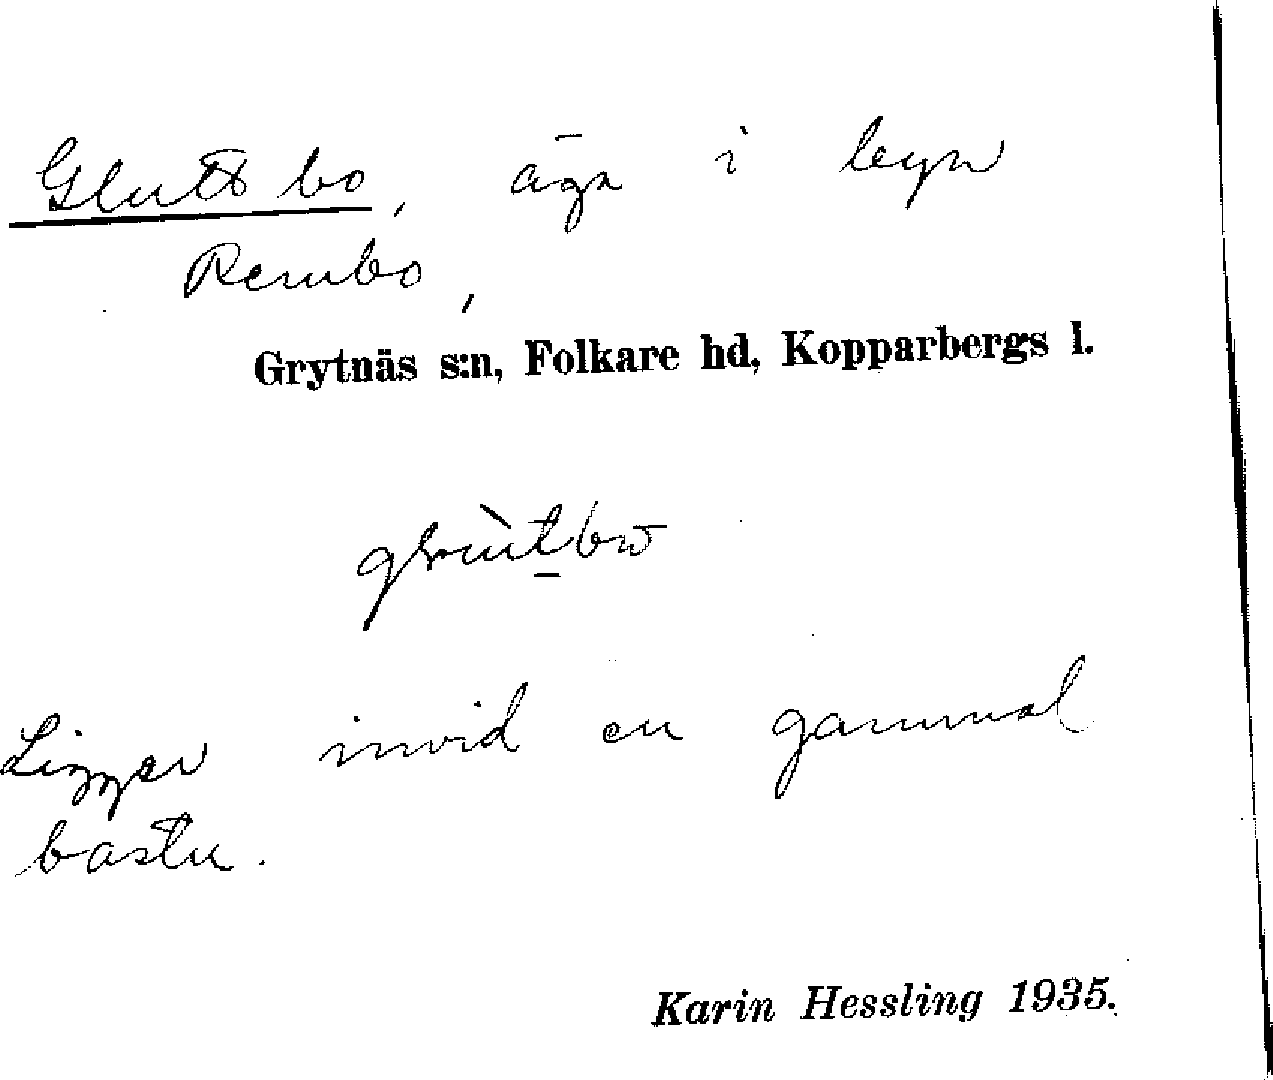 Glutt bo, äga i byn
Rembo,
Grytnäs s:n, Folkare hd, Kopparbergs l.
Ligger invid en gammal
bastu.
Karin Hessling 1935.